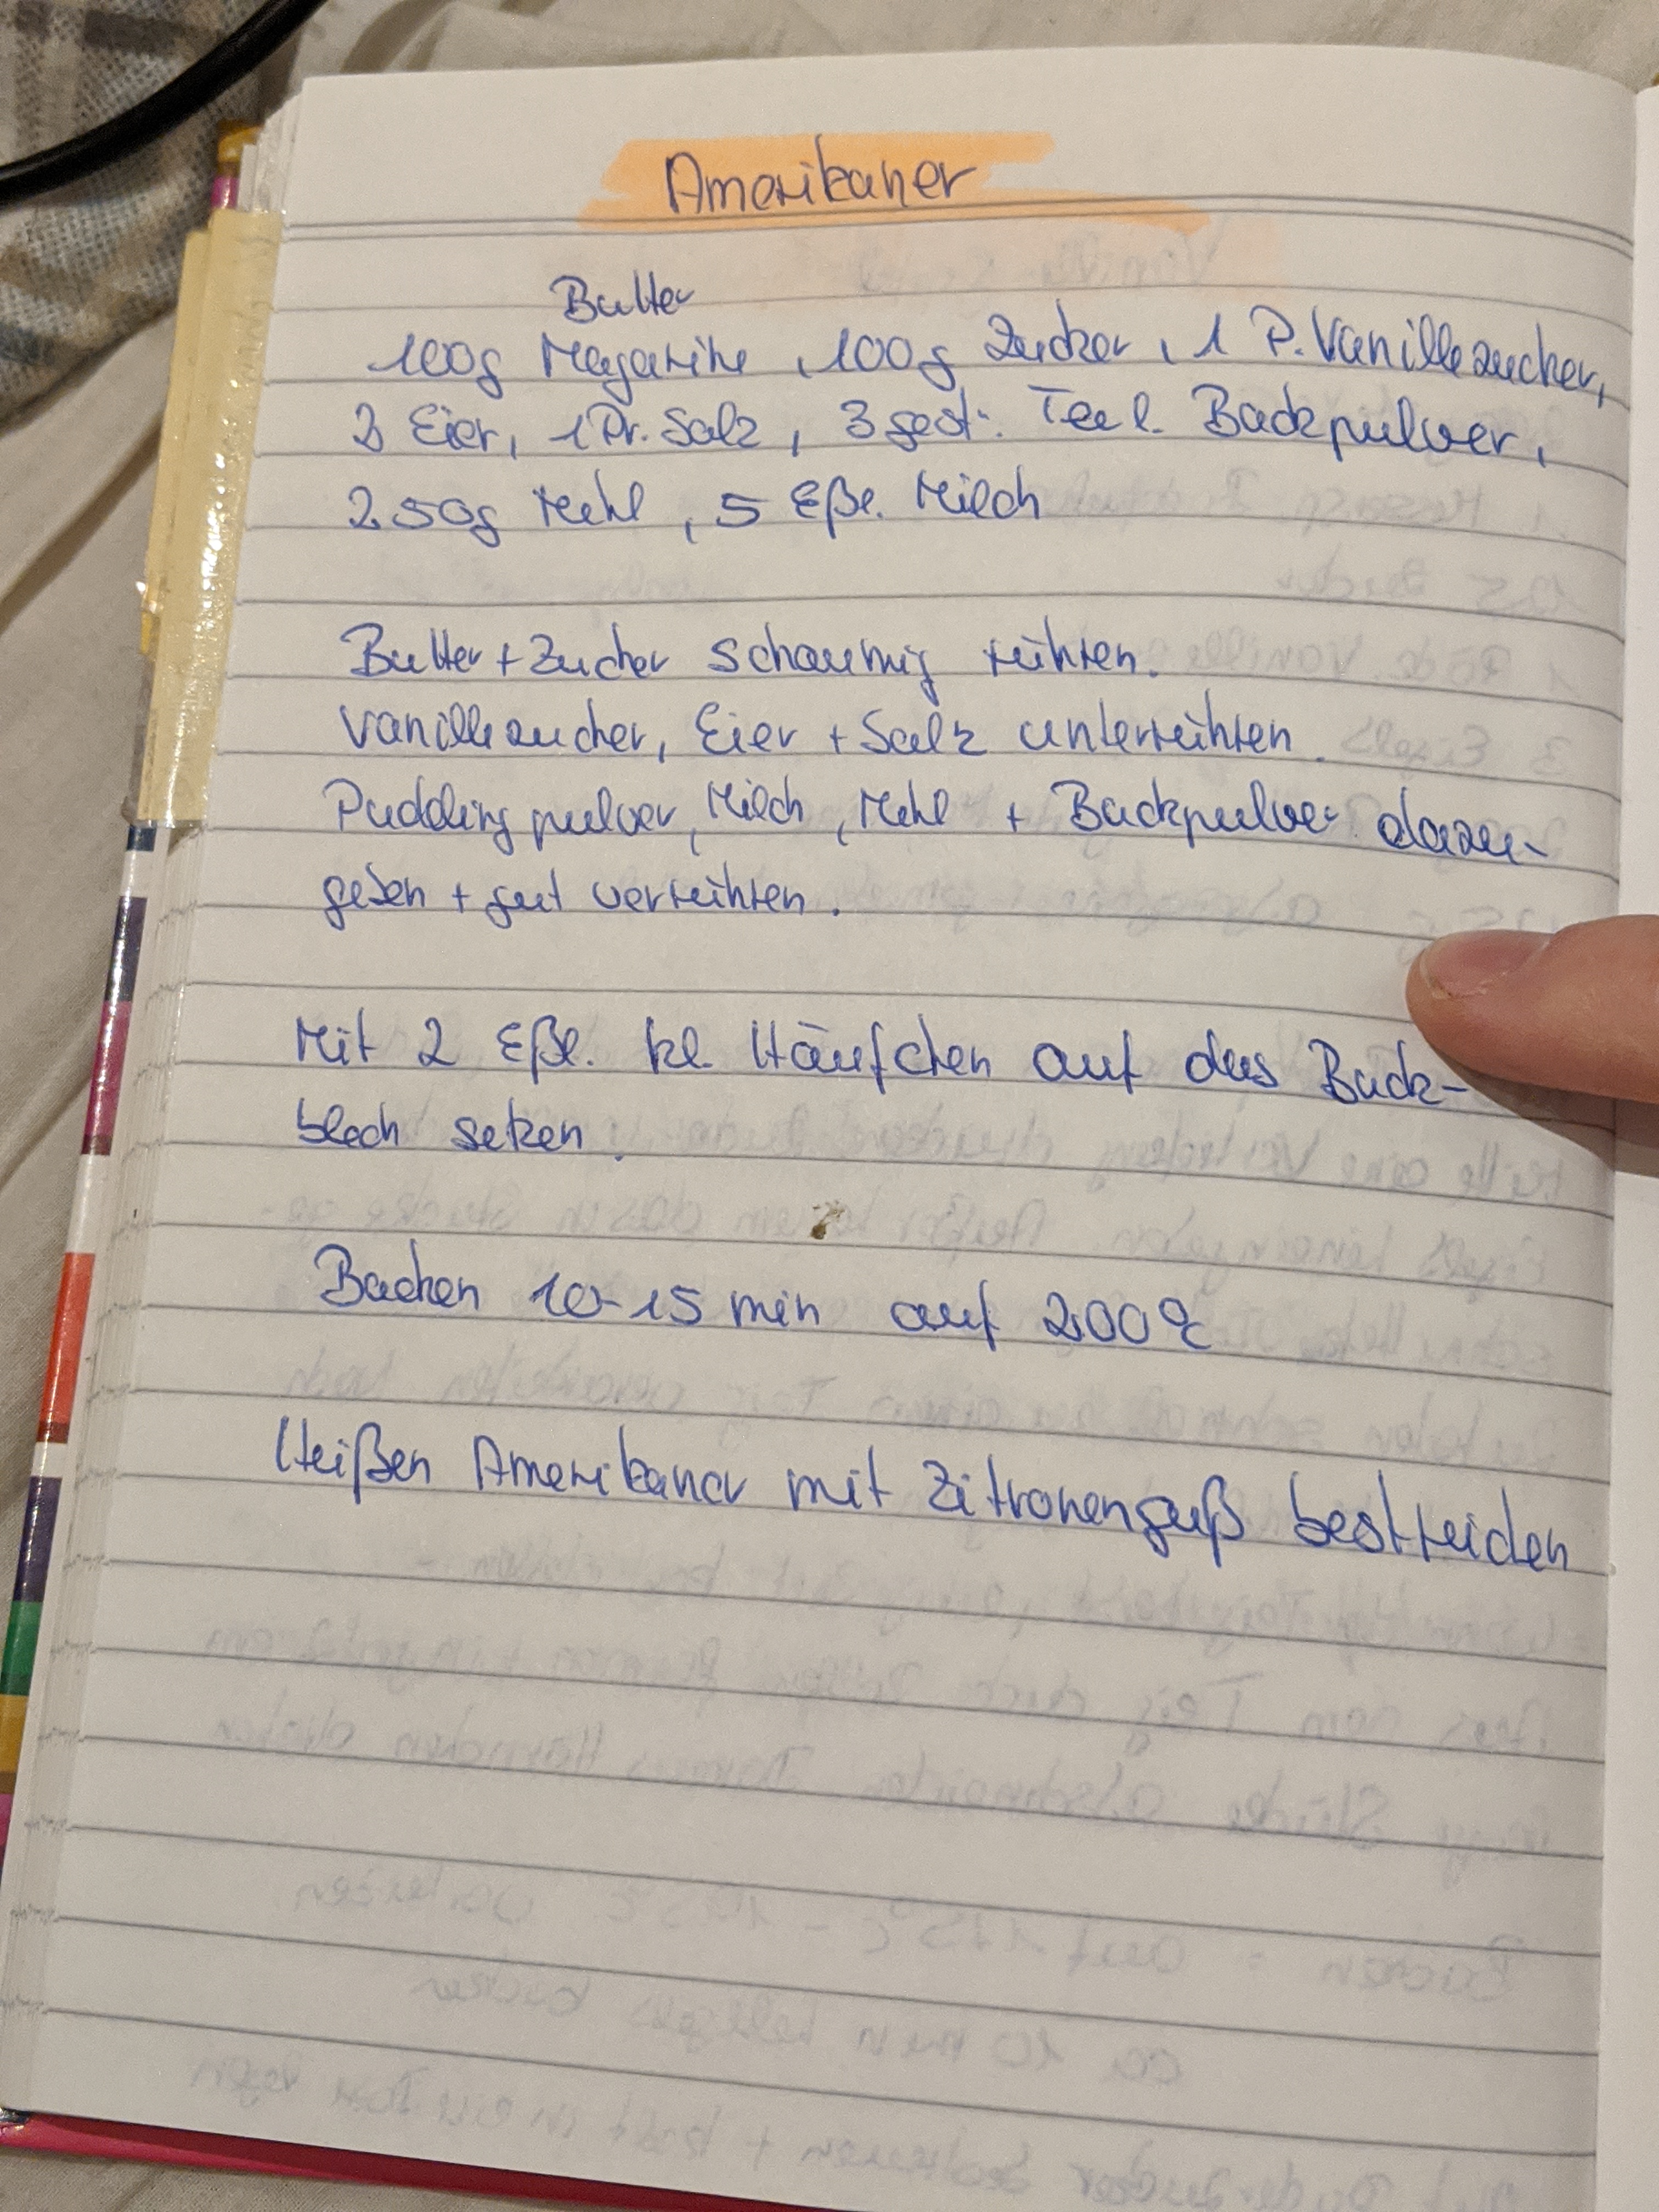 Amerikaner
Butter
100g Magarine, 100g Zucker, 1 P. Vanillezucker,
2 Eier, 1 Pr. Salz, 3 gest. Teel. Backpulver,
250g Mehl, 5 Eßl. Milch
Butter + Zucker schaumig rühren.
Vanillezucker, Eier + Salz unterrühren.
Puddingpulver, Milch, Mehl + Backpulver dazu-
geben + gut verrühren.
Mit 2 Eßl. kl. Häufchen auf das Back-
blech setzen.
Backen 10-15 min auf 200°C
Heißen Amerikaner mit Zitronenguß bestreichen